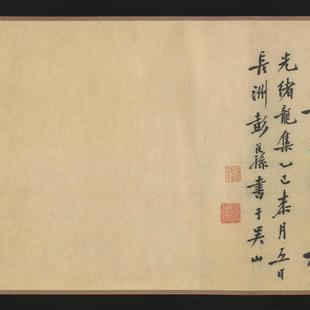 光緒龍集乙巳桼月五日
長洲彭孫書于吳山